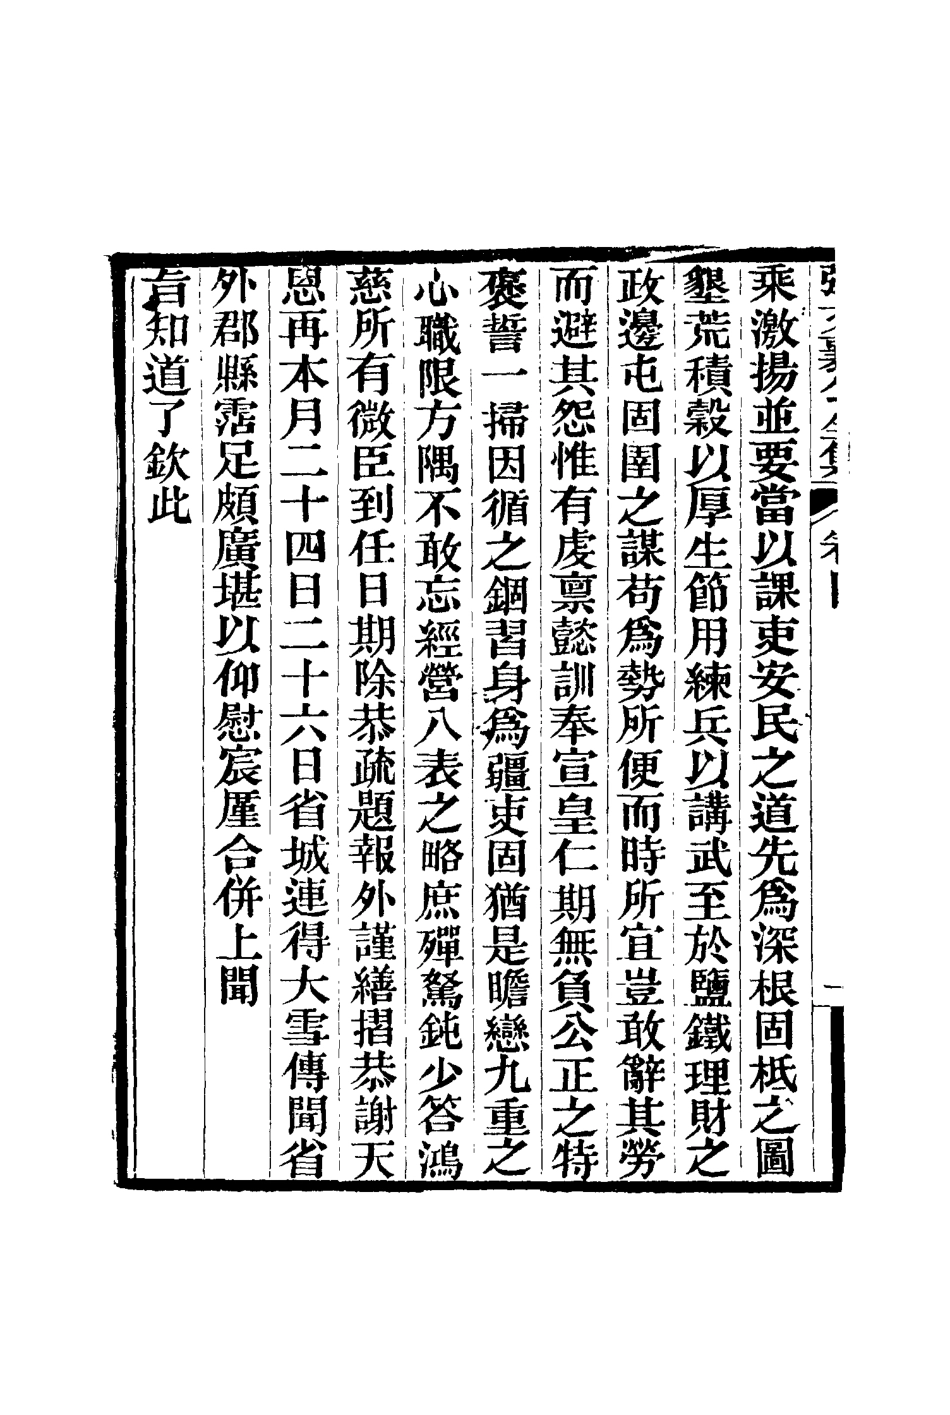 乘激揚並要當以課吏安民之道先爲深根固柢之圖
墾荒積穀以厚生節用練兵以講武至於鹽鐵理財之
政邊屯固圉之謀苟爲勢所便而時所宜豈敢辭其勞
而避其怨惟有虔禀懿訓奉宣皇仁期無負公正之特
褒誓一掃因循之錮習身爲疆吏固猶是瞻戀九重之
心職限方隅不敢忘經營八表之略庶殫駑鈍少答鴻
慈所有微臣到任日期除恭疏題報外謹繕摺恭謝天
恩再本月二十四日二十六日省城連得大雪傳聞省
外郡縣霑足頗廣堪以仰慰宸厪合併上聞
旨知道了欽此